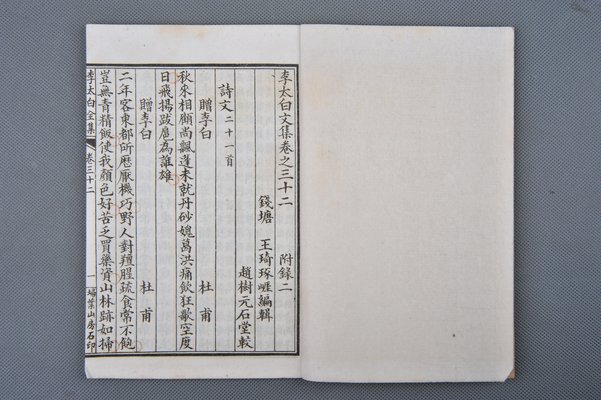 李太白文集卷之三十二 附錄二
錢塘 王琦琢崖編輯
趙樹元石堂較
詩文二十一首
贈李白 杜甫
秋來相顧尚飄蓬未就丹砂媿葛洪痛飲狂歌空度
日飛揚跋扈為誰雄
贈李白 杜甫
二年客東都所歷厭機巧野人對羶腥蔬食常不飽
豈無青精飯使我顏色好苦乏買藥資山林跡如掃
李太白全集 卷三十二 一 埽葉山房石印